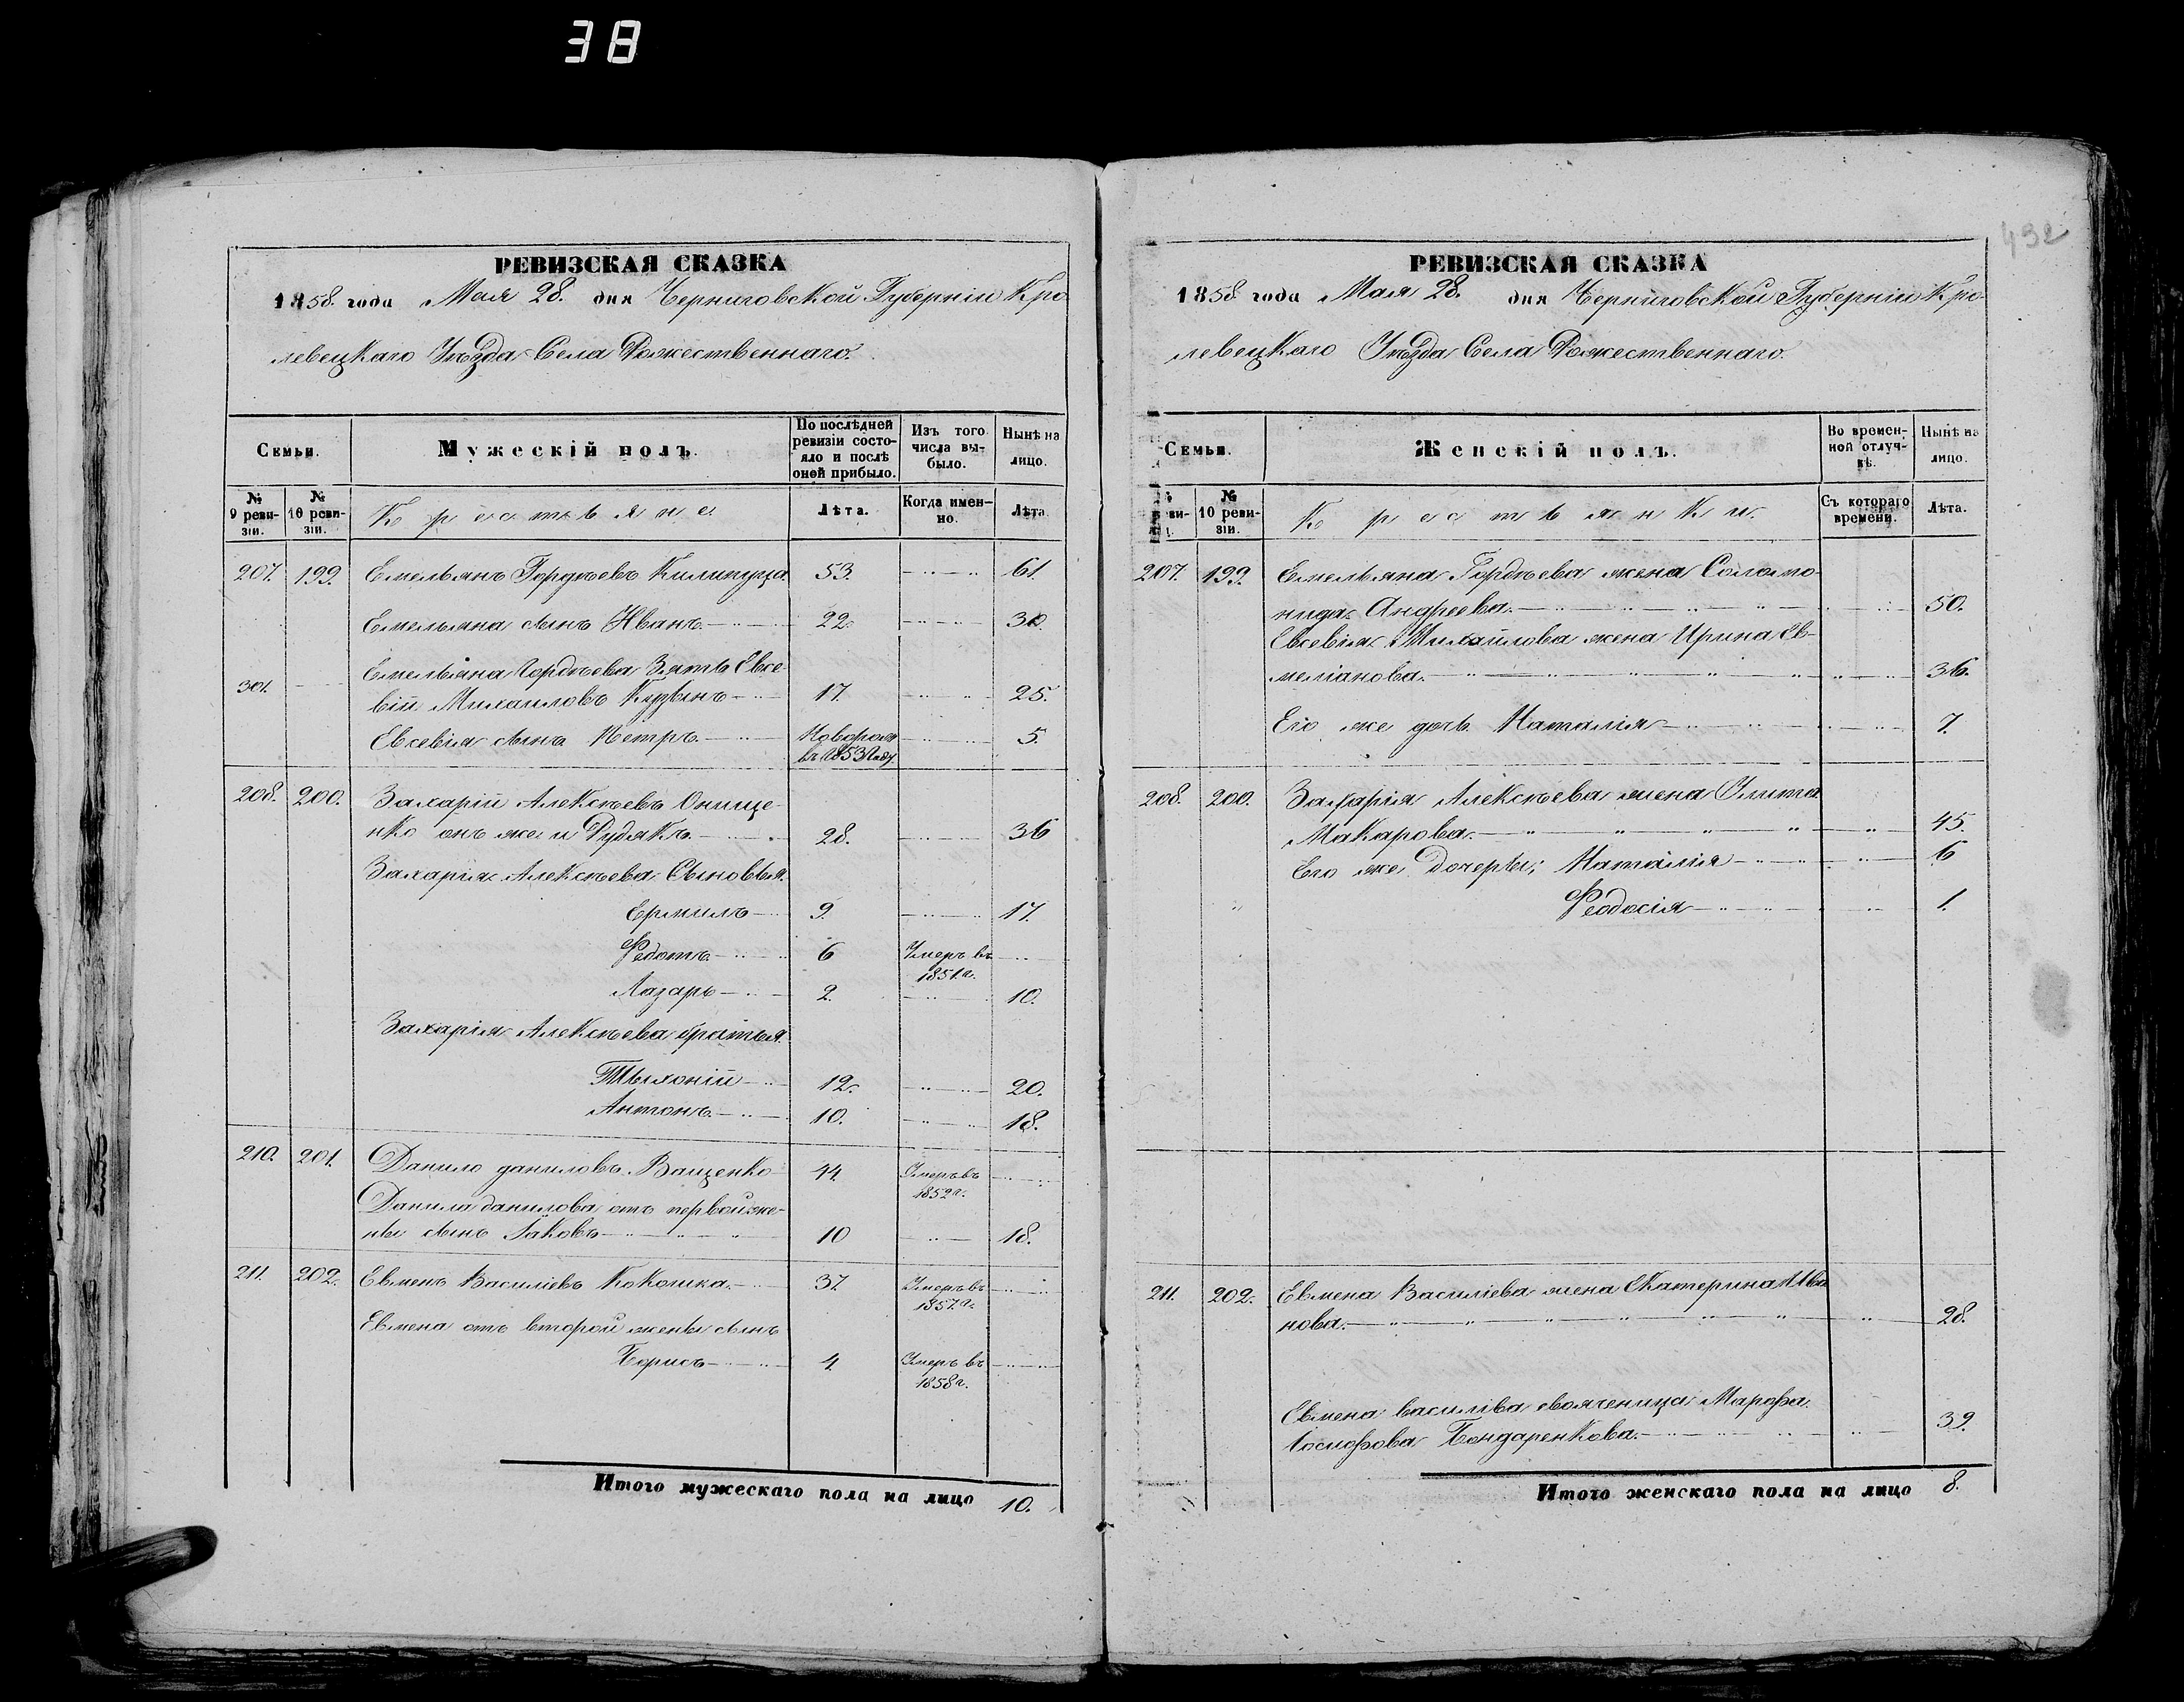 38
РЕВИЗСКАЯ СКАЗКА
1858. года Мая 28. дня Черниговской Губерніи Кро-
левецкаго Уѣзда Села Рожественнаго.
Семьи.
Мужескій полъ.
По послѣдней ревизіи состояло и послѣ оной прибыло.
Изъ того числа выбыло.
Нынѣ на лицо.
№ 9 ревизіи.
№ 10 ревизіи.
Крестьяне
Лѣта.
Когда именно.
Лѣта.
207. 199. Емельянъ Гордѣевъ 53. 61.
Емельяна сынъ Иванъ 22. 30.
Емельяна Гордѣева Зять Евсе-
301. вій Михаиловъ 17. 25.
Евсевія сынъ Петръ Новорожд 5.
въ 1853 году
208. 200. Захарій Алексѣевъ Онище-
нко онъ же и Рудякъ 28. 36
Захарія Алексѣева Сыновья.
Ермилъ 9. 17.
Федотъ 6 Умеръ въ
1851 г.
Лазарь 2. 10.
Захарія Алексѣева братья.
Тыхоній 12. 20.
Антонъ 10. 18.
210. 201. Данило даниловъ Ващенко 44. Умеръ въ
1852 г.
Данила данилова отъ первой же-
ны сынъ Іаковъ 10 18.
211. 202. Евменъ Василіевъ Кокошка. 37. Умеръ въ
1857 г.
Евмена отъ второй жены сынъ
Борисъ 4. Умеръ въ
1858 г.
Итого мужескаго пола на лицо 10.
432
РЕВИЗСКАЯ СКАЗКА
1858 года Мая 28. дня Черниговской Губерніи Кро-
левецкаго Уѣзда Села Рожественнаго.
Семьи.
Женскій полъ.
Во временной отлучкѣ.
Нынѣ на лицо.
№ 10 ревизіи.
Крестьянки.
Съ котораго времени.
Лѣта.
207. 199. Емельяна Гордѣева жена Соломо-
нида Андреева. 50.
Евсевія Михайлова жена Ирина Ев-
меліанова. 36.
Его же дочь Наталія 7.
208. 200. Захарія Алексѣева жена Улита
Макарова. 45.
Его же Дочеры; Наталія 6
Феодосія 1.
211. 202. Евмена Василіева жена Екатерина Ива
нова. 28.
Евмена василіва своячница Марфа
Іосифова Бондаренкова. 39.
Итого женскаго пола на лицо 8.